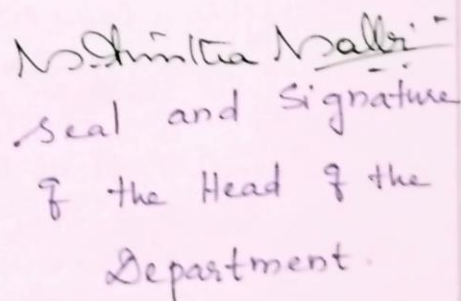 seal and Signature
of the Head of the
Department.